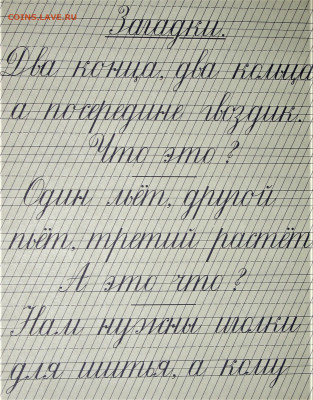 COINS.LAVE.RU
Загадки.
Два конца, два кольца
а посередине гвоздик.
Что это?
Один льёт, другой
пьёт, третий растёт
А это что?
Нам нужны иголки
для шитья, а кому